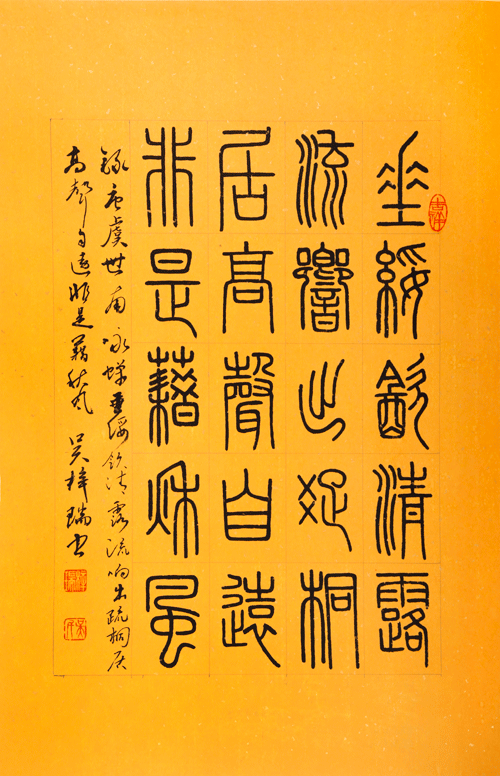 垂緌飲清露
流響出疏桐
居高聲自遠
非是藉秋風
録唐虞世南咏蝉垂緌饮清露流响出疏桐居
高聲自遠非是藉秋风 吴梓瑞书